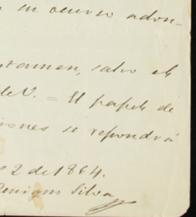 su ocurso adon-
tamen, salvo el
de V. = El papel de
iones se repondrá
2 de 1864.
Silva